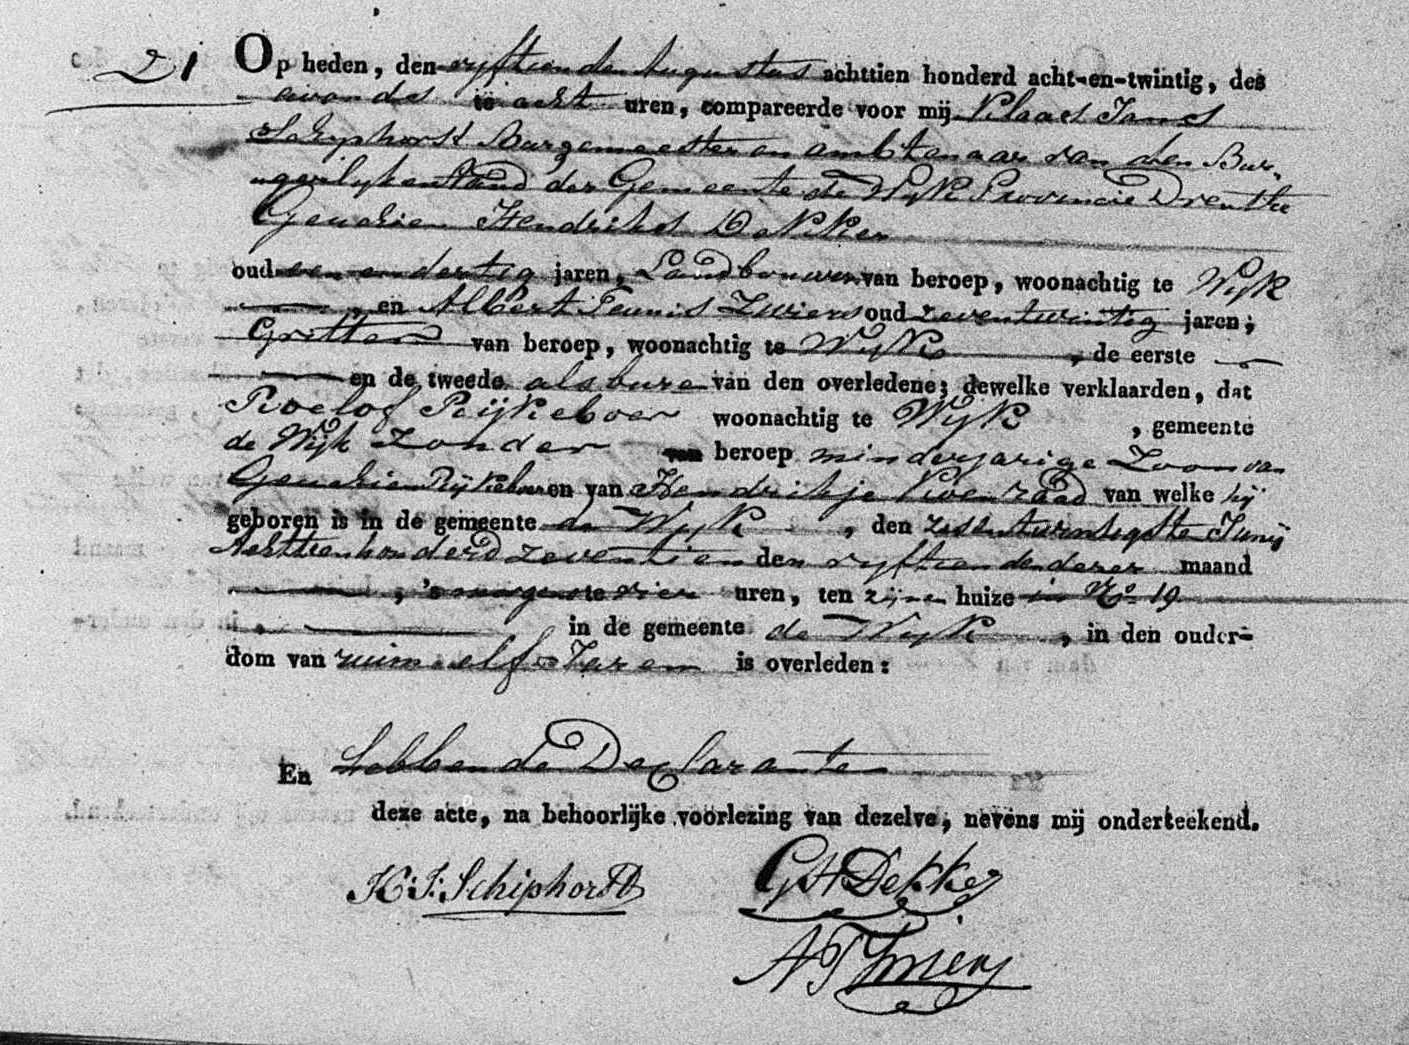 21 Op heden, den vyftienden Augustus achttien honderd acht-en-twintig, des
avonds te acht uren, compareerde voor mij Klaas Jans
Schiphorst Burgemeester en ambtenaar van den Bur-
gerlyken Stand der Gemeente de Wyk Provincie Drenthe
Geuchien Hendriks Dekker
oud een en dertig jaren, Landbouwer van beroep, woonachtig te Wyk
, en Albert Teunis Zwiers oud zeventwintig jaren,
van beroep, woonachtig te Wyk , de eerste
en de tweede als bure van den overledene; dewelke verklaarden, dat
Roelof Rijkeboer woonachtig te Wyk , gemeente
de Wyk Zonder beroep minderjarige Zoon van
Geuchien Rijkeboer en van Hendrikje Koenraad van welke hij
geboren is in de gemeente de Wyk , den zesentwintigste Junij
Achttienhonderd zeventien den vyftienden dezer maand
, 's morgens te vier uren, ten zijne huize in No 19
in de gemeente de Wyk , in den ouder-
dom van ruim elf Jaren is overleden:
En hebben de Declaranten
deze acte, na behoorlijke voorlezing van dezelve, nevens mij onderteekend.
K: J: Schiphorst GH Dekker
AT Zwiers